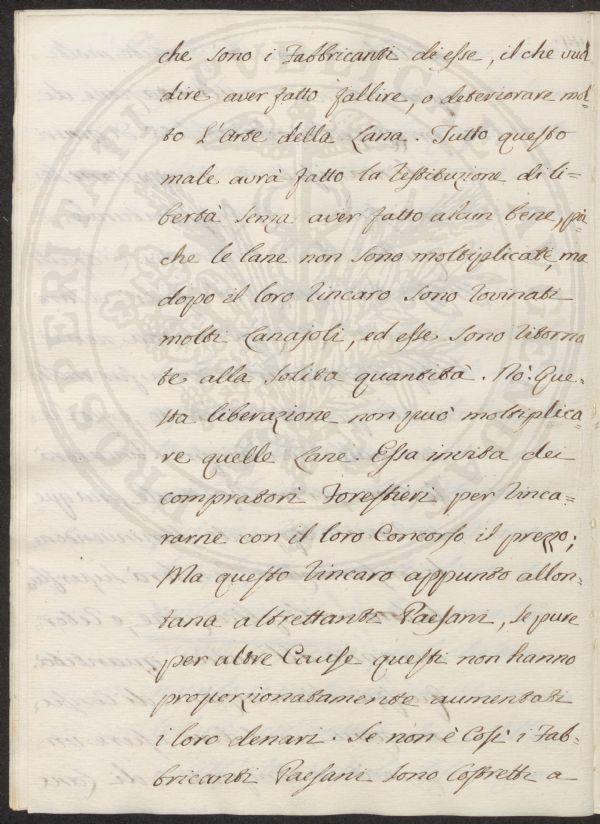 che sono i Fabbricanti di esse, il che vuol
dire aver fatto fallire, o deteriorare mol-
to l'Arte della Lana. Tutto questo
male avrà fatto la restituzione di li-
bertà senza aver fatto alcun bene, poi-
che le lane non sono moltiplicate, ma
dopo il loro rincaro sono rovinati
molti Lanajoli, ed esse sono ritorna
te alla solita quantità. Nò: Que-
sta liberazione non può moltiplica-
re quelle Lane. Essa invita dei
compratori Forestieri per rinca-
rarne con il loro Concorso il prezzo;
Ma questo rincaro appunto allon-
tana altrettanti Paesani, se pure
per altre Cause questi non hanno
proporzionatamente aumentati
i loro denari. Se non è Così i Fab-
bricanti Paesani sono Costretti a